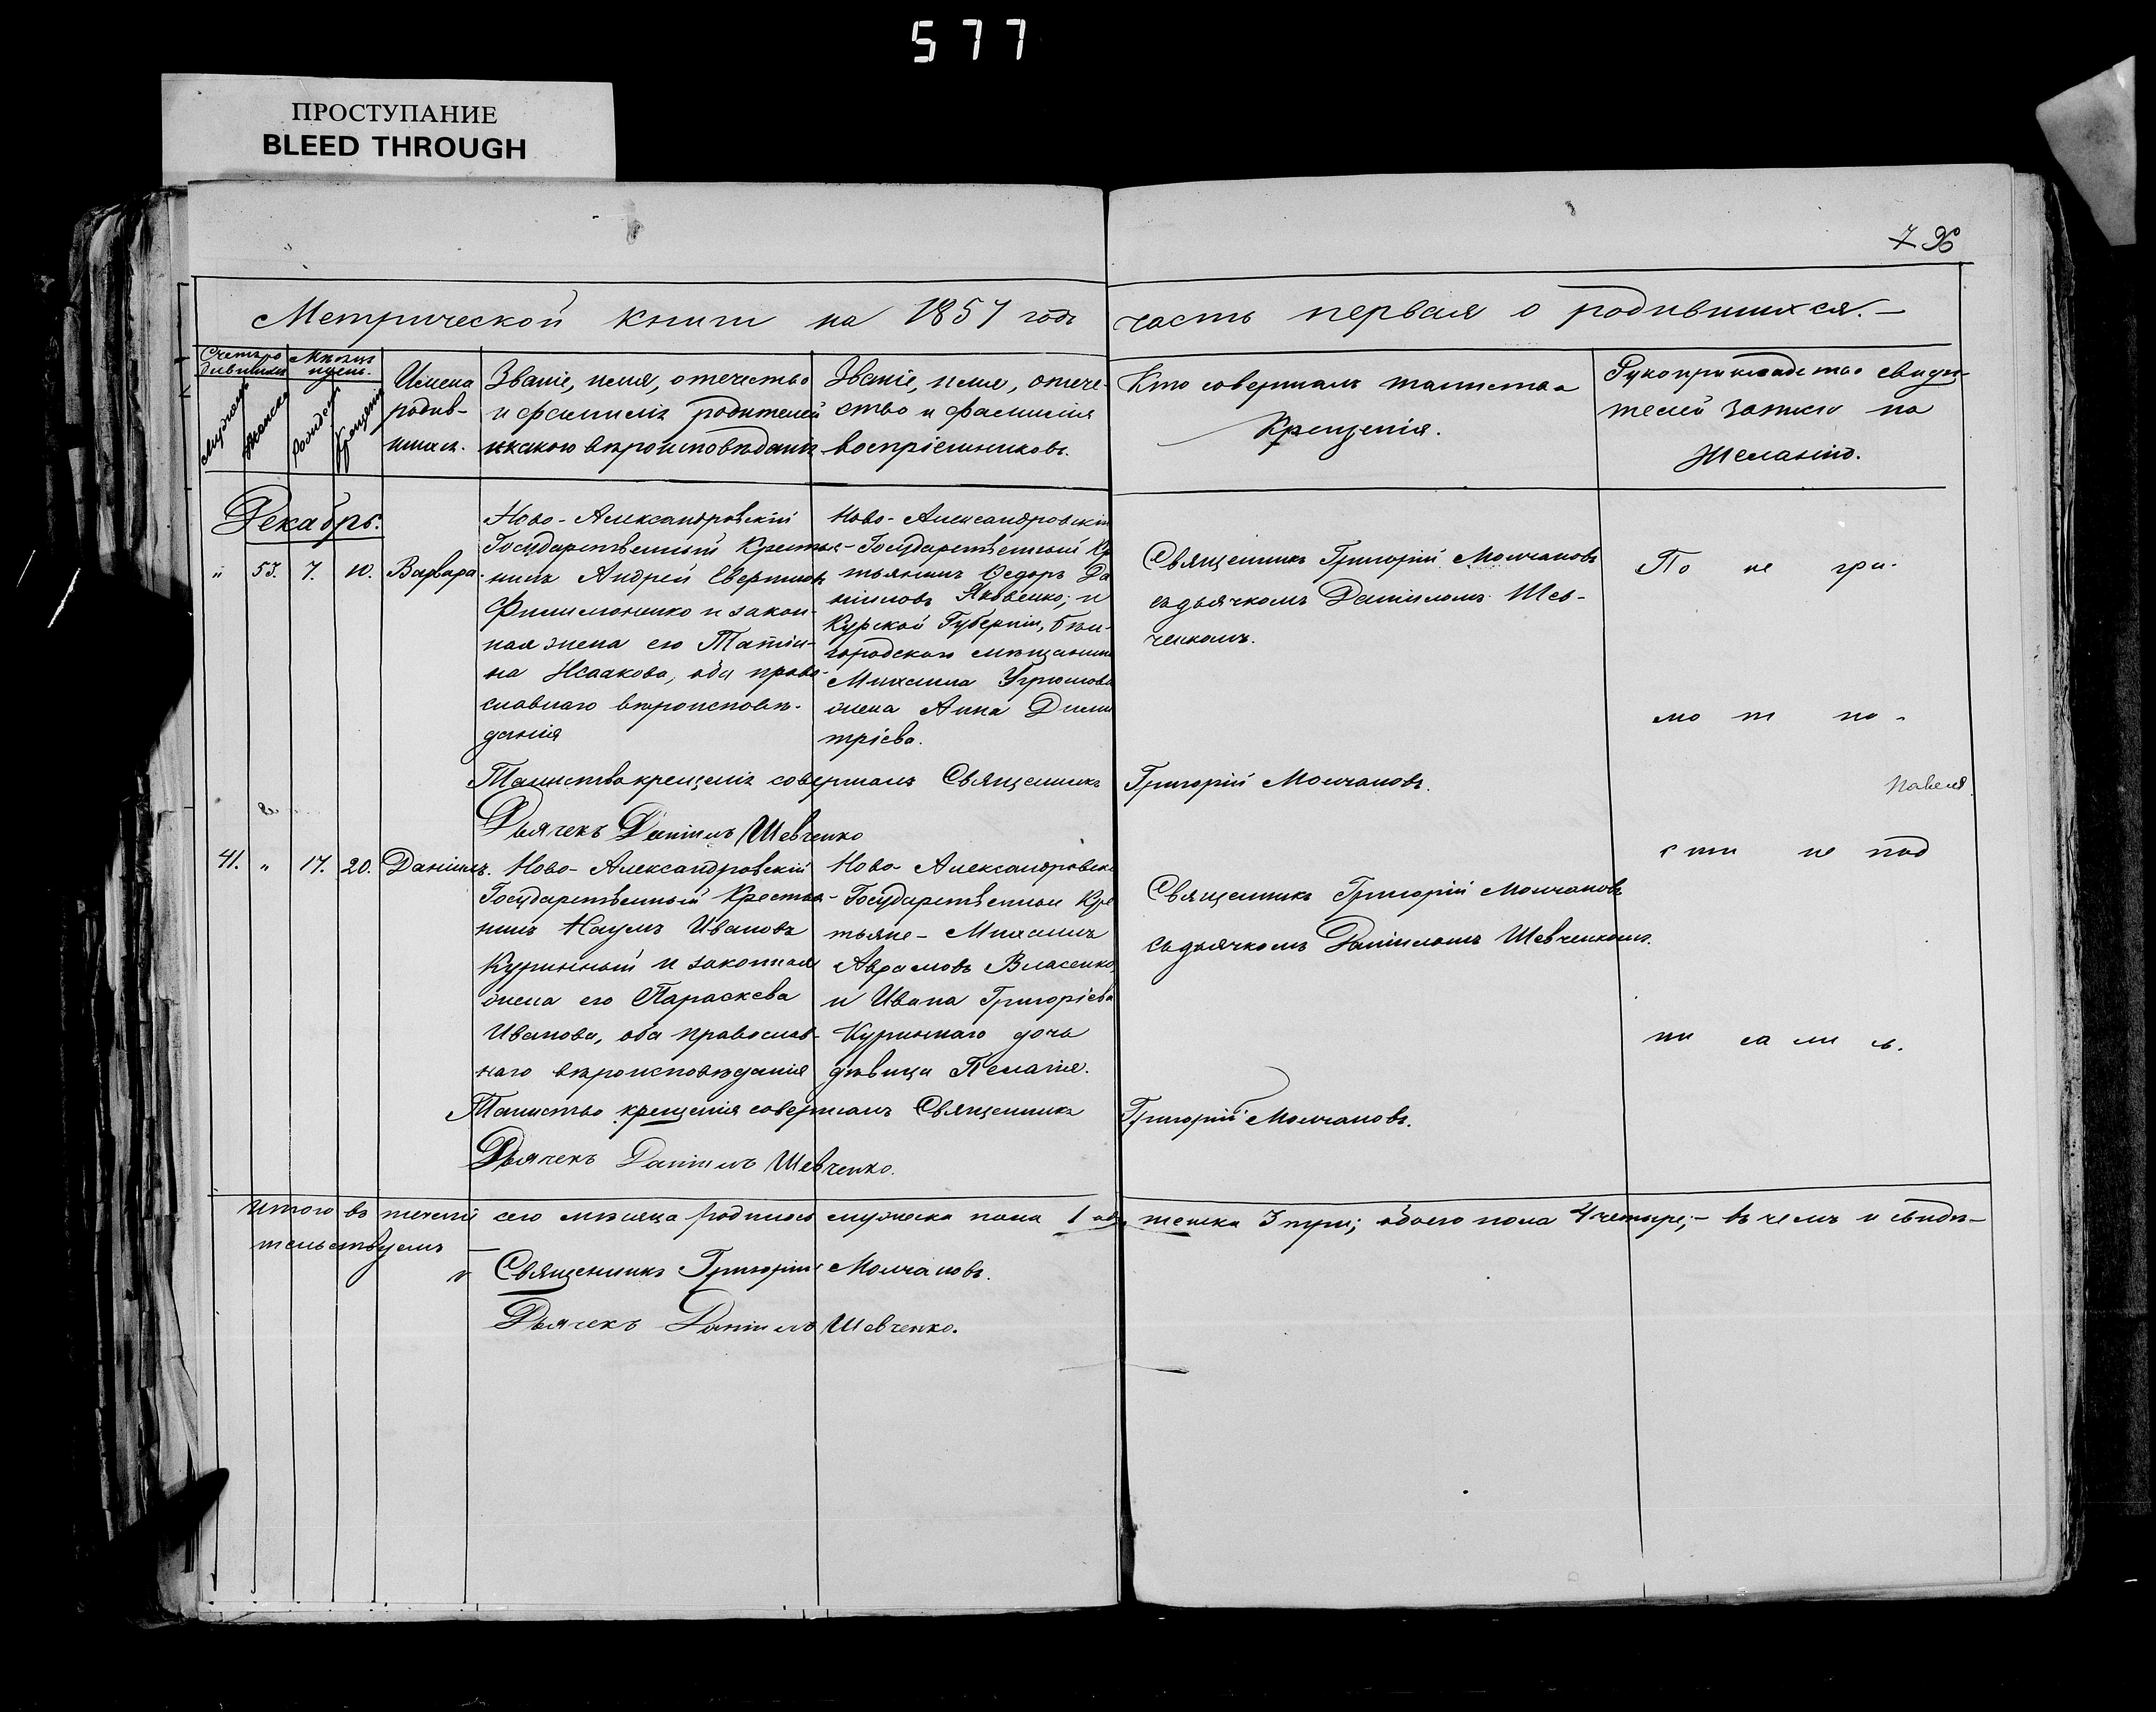 577
ПРОСТУПАНИЕ
BLEED THROUGH
7 96
Метрической книги на 1857 годъ часть первая о родившихся.-
Счетъ родившихся
Мѣсяцъ и день.
Мужеска
Женска
Рожденія
Крещенія
Имена
родив-
шихся.
Званіе, имя, отечество
и фамилія родителей
и какого вѣроисповѣданія
Званіе, имя, отече-
ство и фамилія
воспріемниковъ.
Кто совершалъ таинство
Крещенія.
Рукоприкладство свидѣ-
телей записи по
желанію.
Декабрь.
" 53. 7. 10. Варвара.
Ново-Александровскій
Государственный Крестья-
нинъ Андрей
Филимоненко и закон-
ная жена его Татія-
на Исаакова, оба право-
славнаго вѣроисповѣ-
данія
Ново-Александровскій
Государственный Кр
тьянинъ Ѳедоръ Да
ніиловъ Яковенко; и
Курской Губерніи, Бѣл-
городскаго мѣщанина
Михаила Угрюмова
жена Анна Дими
тріева.
Священникъ Григорій Молчановъ
съ дьячкомъ Даніиломъ Шев-
ченкомъ.
По не гра-
мо т но-
Таинство крещенія совершалъ Священникъ Григорій Молчановъ.
Дьячекъ Даніилъ Шевченко
с ти не под
41. " 17. 20. Даніилъ.
Ново-Александровскій
Государственный Крестья-
нинъ Наумъ Ивановъ
Куринный и законная
жена его Параскева
Иванова, оба православ-
наго вѣроисповѣданія
Ново-Александровскі
Государственные Кре
тьяне - Михаилъ
Аврамовъ Власенко
и Ивана Григоріева
Куриннаго дочь
дѣвица Пелагія.
Священникъ Григорій Молчановъ
съ дьячкомъ Даніиломъ Шевченкомъ.
пи са ли сь.
Таинство крещенія совершалъ Священникъ Григорій Молчановъ.
Дьячекъ Даніилъ Шевченко.
Итого въ теченіи сего мѣсяца родилось мужеска пола 1 женска 3 три; обоего пола 4 четыре;- въ чемъ и свидѣ-
тельствуемъ -
Священникъ Григорій Молчановъ.
Дьячекъ Даніилъ Шевченко.